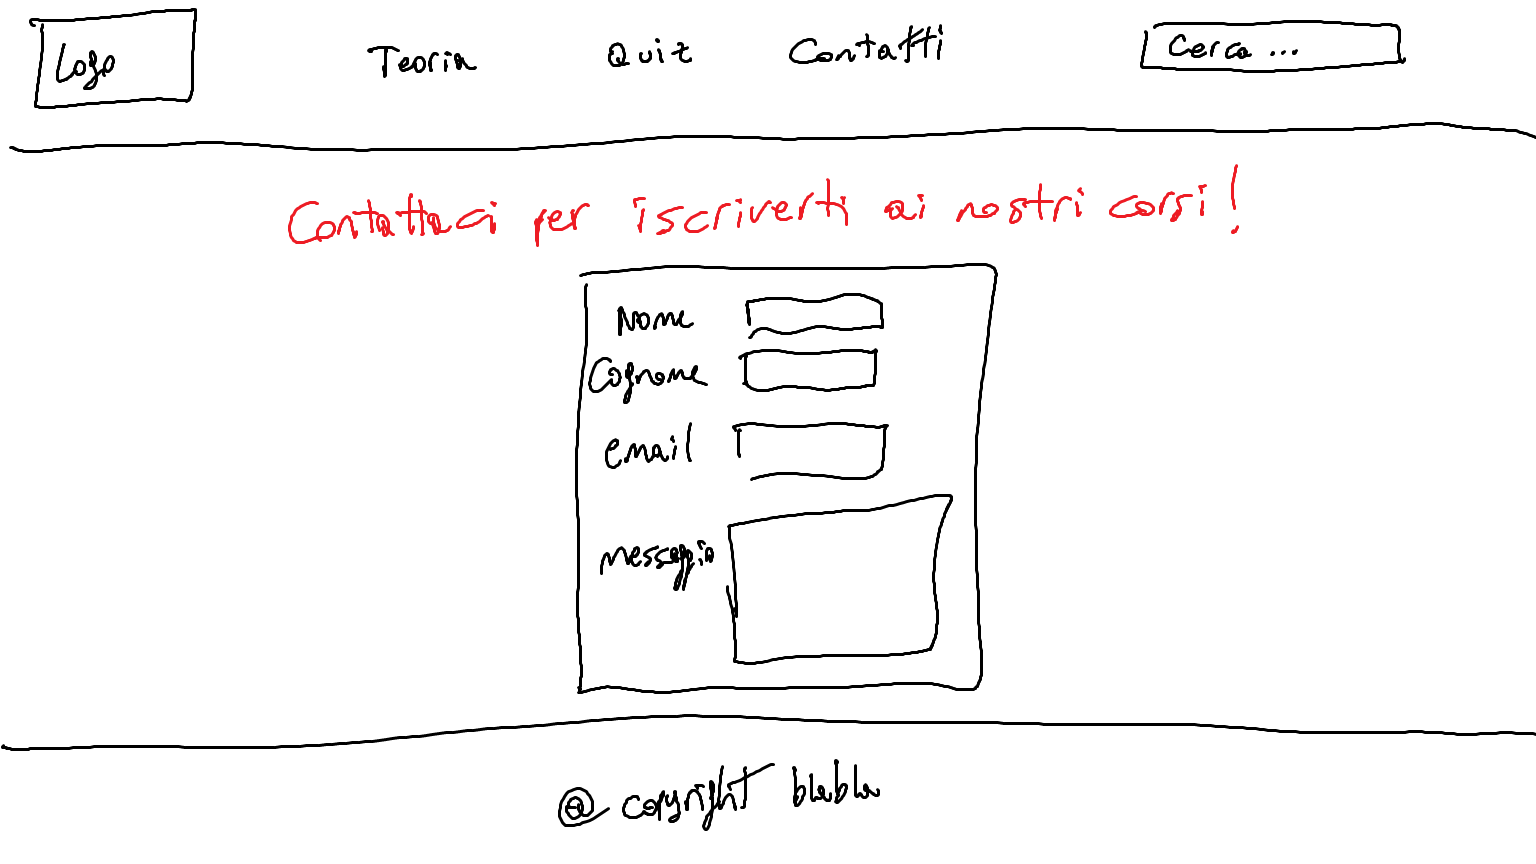 Logo Teoria Quiz Contatti Cerca ...
Contattaci per iscriverti ai nostri corsi!
Nome
Cognome
email
messaggio
@ copyright blabla